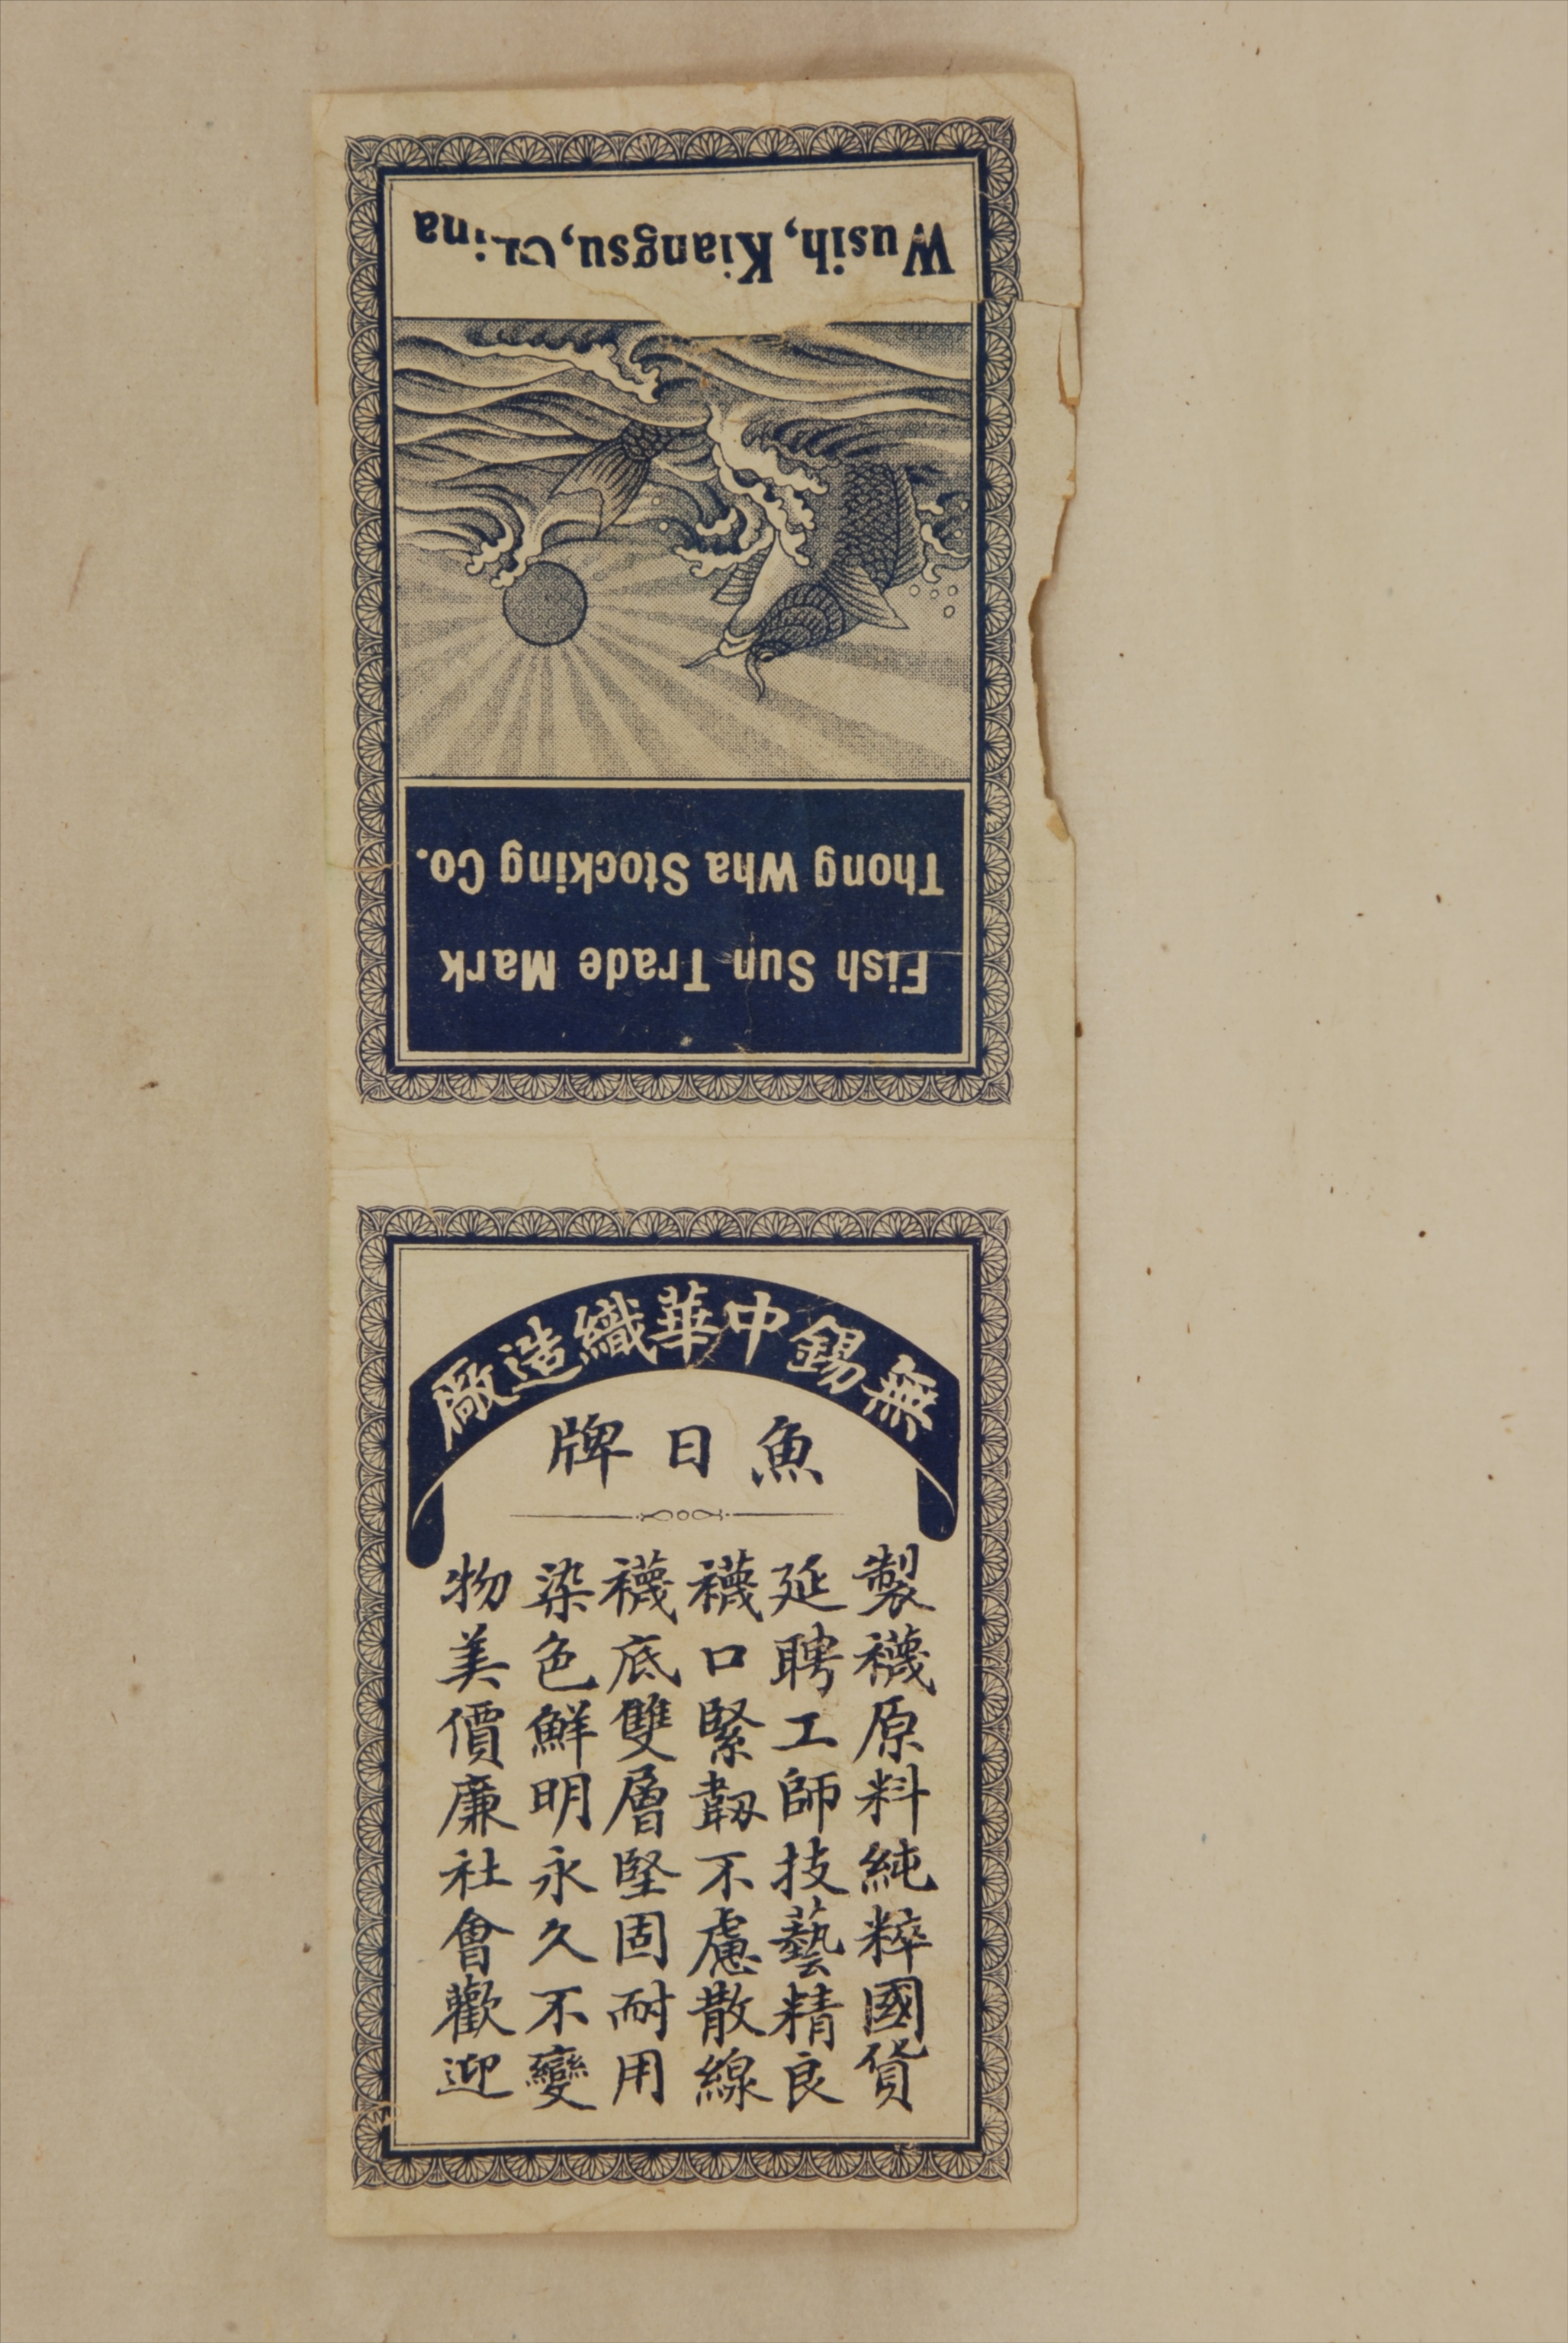 Fish Sun Trade Mark
Thong Wha Stocking Co.
Wusih, Kiangsu, China
無錫中華織造廠
魚日牌
製襪原料純粹國貨
延聘工師技藝精良
襪口緊韌不慮散線
襪底雙層堅固耐用
染色鮮明永久不變
物美價廉社會歡迎